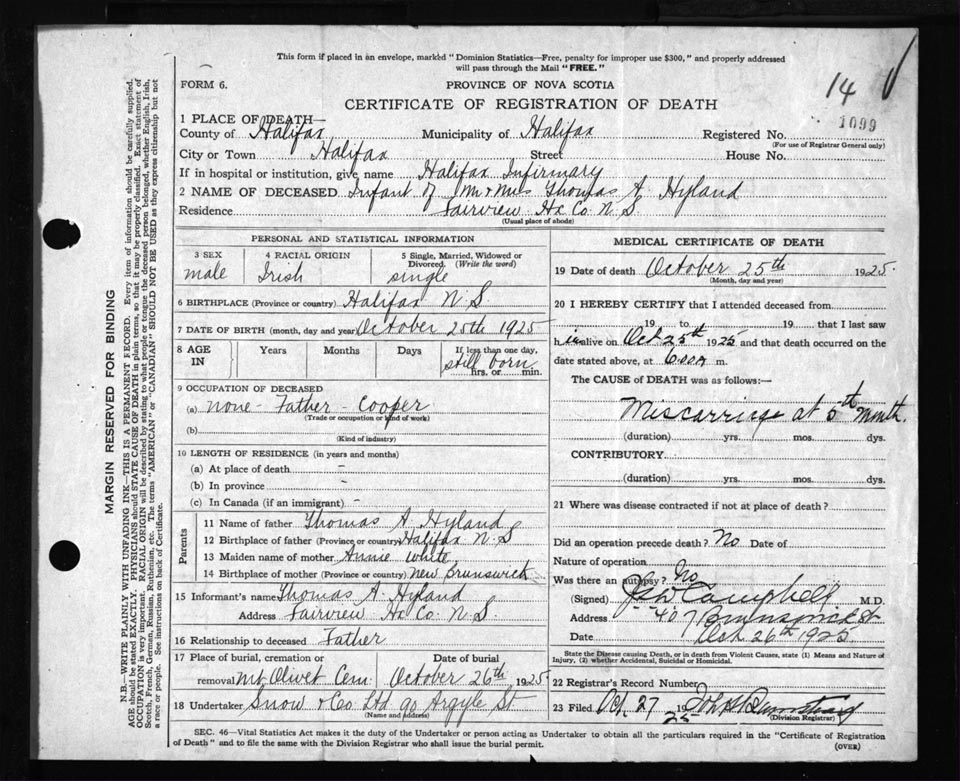 This form if placed in an envelope, marked "Dominion Statistics—Free, penalty for improper use $300," and properly addressed
will pass through the Mail "FREE."
FORM 6.
PROVINCE OF NOVA SCOTIA
14
CERTIFICATE OF REGISTRATION OF DEATH
1099
1 PLACE OF DEATH—
County of Halifax Municipality of Halifax Registered No.
(For use of Registrar General only)
City or Town Halifax Street House No.
If in hospital or institution, give name Halifax Infirmary
2 NAME OF DECEASED Infant of Mr & Mrs Thomas A. Hyland
Residence Fairview Hx Co. N.S.
(Usual place of abode)
PERSONAL AND STATISTICAL INFORMATION
3 SEX 4 RACIAL ORIGIN 5 Single, Married, Widowed or Divorced. (Write the word)
male Irish single
6 BIRTHPLACE (Province or country) Halifax N.S
7 DATE OF BIRTH (month, day and year) October 25th 1925
8 AGE IN Years Months Days If less than one day,
still born
hrs. or min.
9 OCCUPATION OF DECEASED
(a) none - Father - Cooper
(Trade or occupation or kind of work)
(b)
(Kind of industry)
10 LENGTH OF RESIDENCE (in years and months)
(a) At place of death -
(b) In province -
(c) In Canada (if an immigrant) -
Parents
11 Name of father Thomas A. Hyland
12 Birthplace of father (Province or country) Halifax N.S
13 Maiden name of mother Annie White
14 Birthplace of mother (Province or country) New Brunswick
15 Informant's name Thomas A. Hyland
Address Fairview Hx Co. N.S.
16 Relationship to deceased Father
17 Place of burial, cremation or Date of burial
removal Mt Olivet Cem. October 26th 1925
18 Undertaker Snow & Co Ltd 90 Argyle St.
(Name and address)
MEDICAL CERTIFICATE OF DEATH
19 Date of death October 25th 1925.
(Month, day and year)
20 I HEREBY CERTIFY that I attended deceased from
19 to 19 that I last saw
h im alive on Oct 25th 1925 and that death occurred on the
date stated above, at 6.00 A m.
The CAUSE of DEATH was as follows:—
Miscarriage at 5th Month.
(duration) yrs. mos. dys.
CONTRIBUTORY
(duration) yrs. mos. dys.
21 Where was disease contracted if not at place of death?
Did an operation precede death? No Date of
Nature of operation
Was there an autopsy? No
(Signed) Campbell M.D.
Address 407 Brunswick St
Date Oct 26th 1925
State the Disease causing Death, or in death from Violent Causes, state (1) Means and Nature of
Injury, (2) whether Accidental, Suicidal or Homicidal.
22 Registrar's Record Number
23 Filed Oct 27 19 25
(Division Registrar)
SEC. 46—Vital Statistics Act makes it the duty of the Undertaker or person acting as Undertaker to obtain all the particulars required in the "Certificate of Registration
of Death" and to file the same with the Division Registrar who shall issue the burial permit.
(OVER)
MARGIN RESERVED FOR BINDING
N.B.—WRITE PLAINLY WITH UNFADING INK—THIS IS A PERMANENT RECORD. Every item of information should be carefully supplied.
AGE should be stated EXACTLY. PHYSICIANS should STATE CAUSE OF DEATH in plain terms, so that it may be properly classified. Exact statement of
OCCUPATION is very important. RACIAL ORIGIN will be described by stating to what people or tongue the deceased person belonged, whether English, Irish,
Scotch, French, German, Russian, Ruthenian, etc. The terms "AMERICAN" or "CANADIAN" SHOULD NOT BE USED as they express citizenship but not
a race or people. See instructions on back of Certificate.